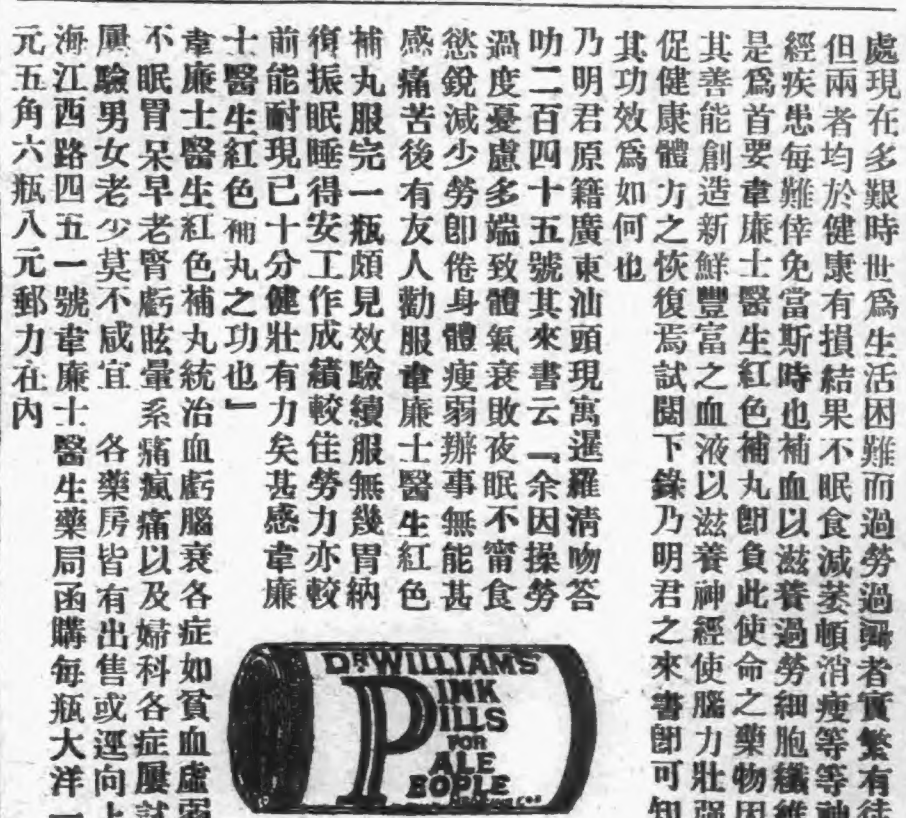 處現在多艱時世爲生活困難而過勞過慮者實繁有徒
但兩者均於健康有損結果不眠食減萎頓消瘦等等神
經疾患每難倖免當斯時也補血以滋養過勞細胞纖維
是爲首要韋廉士醫生紅色補丸卽負此使命之藥物因
其善能創造新鮮豐富之血液以滋養神經使腦力壯强
促健康體力之恢復焉試閱下錄乃明君之來書卽可知
其功效爲如何也
乃明君原籍廣東汕頭現寓暹羅淸吻答
叻二百四十五號其來書云『余因操勞
過度憂慮多端致體氣衰敗夜眠不甯食
慾銳減少勞卽倦身體瘦弱辦事無能甚
感痛苦後有友人勸服韋廉士醫生紅色
補丸服完一瓶頗見效驗續服無幾胃納
復振眠睡得安工作成績較佳勞力亦較
前能耐現已十分健壯有力矣甚感韋廉
士醫生紅色補丸之功也』
韋廉士醫生紅色補丸統治血虧腦衰各症如貧血虛弱
不眠胃呆早老腎虧眩暈系痛瘋痛以及婦科各症屢試
屢驗男女老少莫不咸宜 各藥房皆有出售或逕向上
海江西路四五一號韋廉士醫生藥局函購每瓶大洋一
元五角六瓶八元郵力在內
DR WILLIAMS'
PINK
PILLS
FOR
PALE
PEOPLE